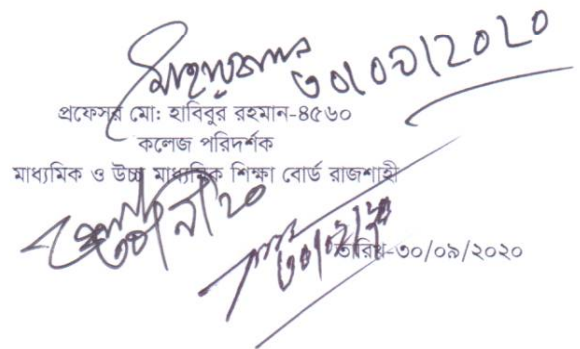 ৩০/০৯/২০২০
প্রফেসর মো: হাবিবুর রহমান-৪৫৬০
কলেজ পরিদর্শক
মাধ্যমিক ও উচ্চ মাধ্যমিক শিক্ষা বোর্ড রাজশাহী
তারিখ-৩০/০৯/২০২০